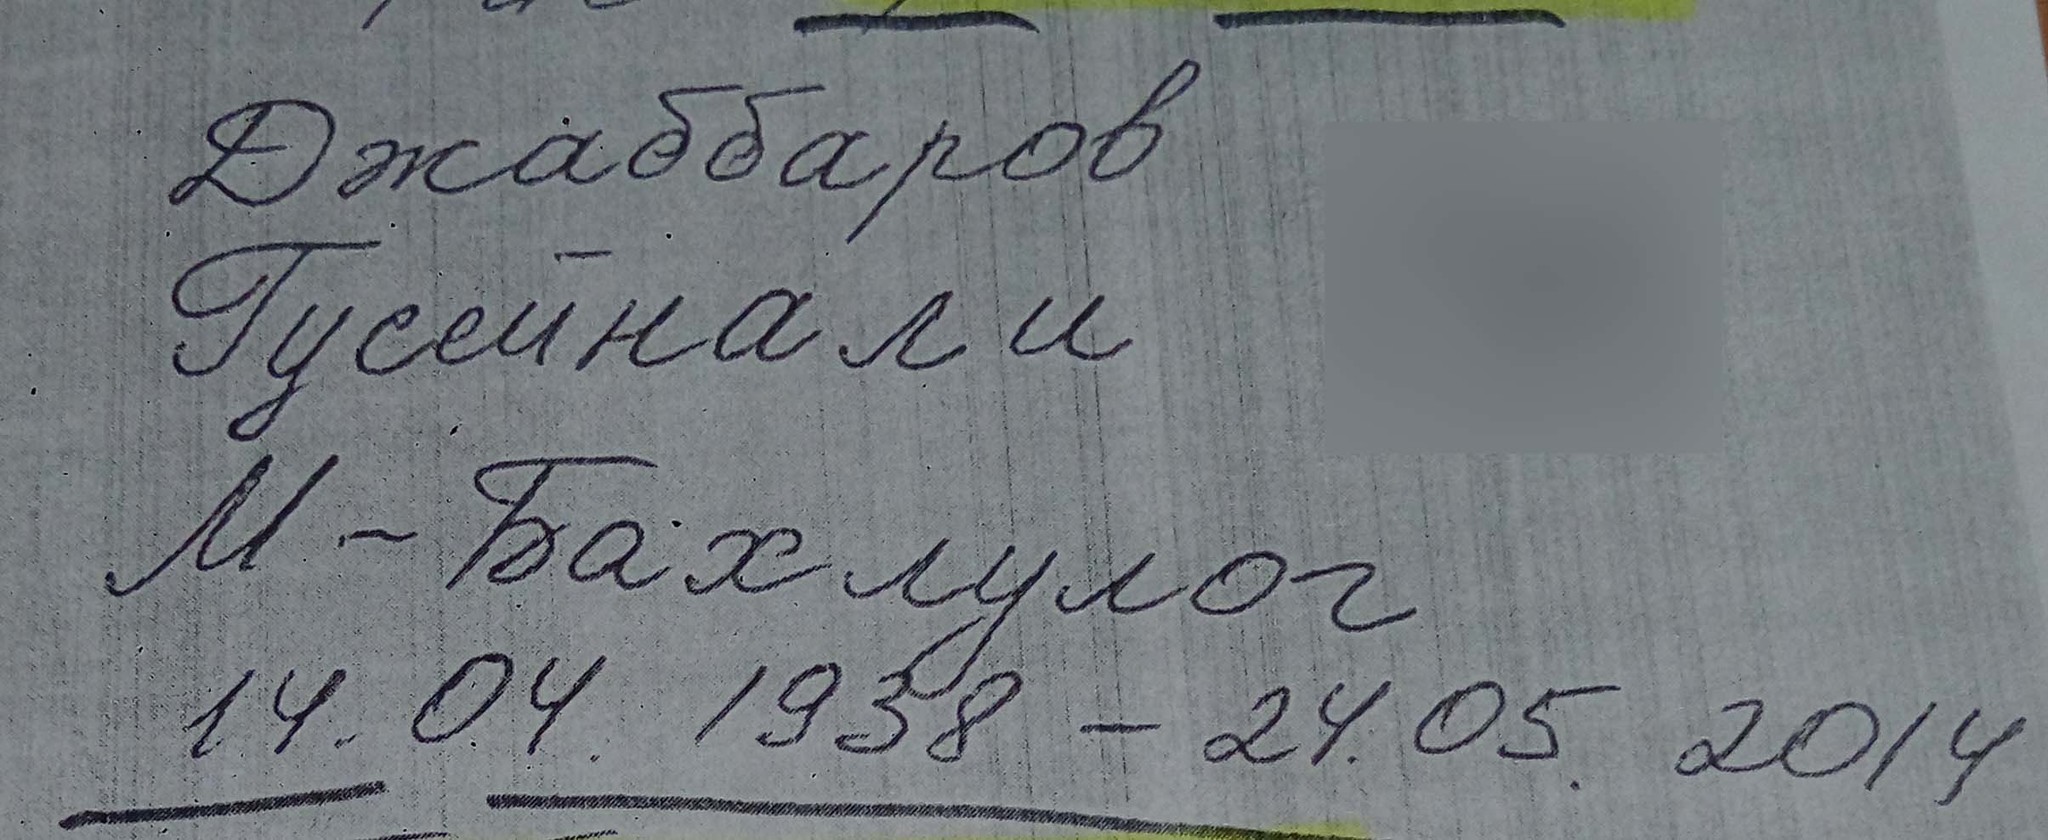 Джаббаров
Гусейнали
М-Бахлулог
14.04.1938 - 24.05.2014